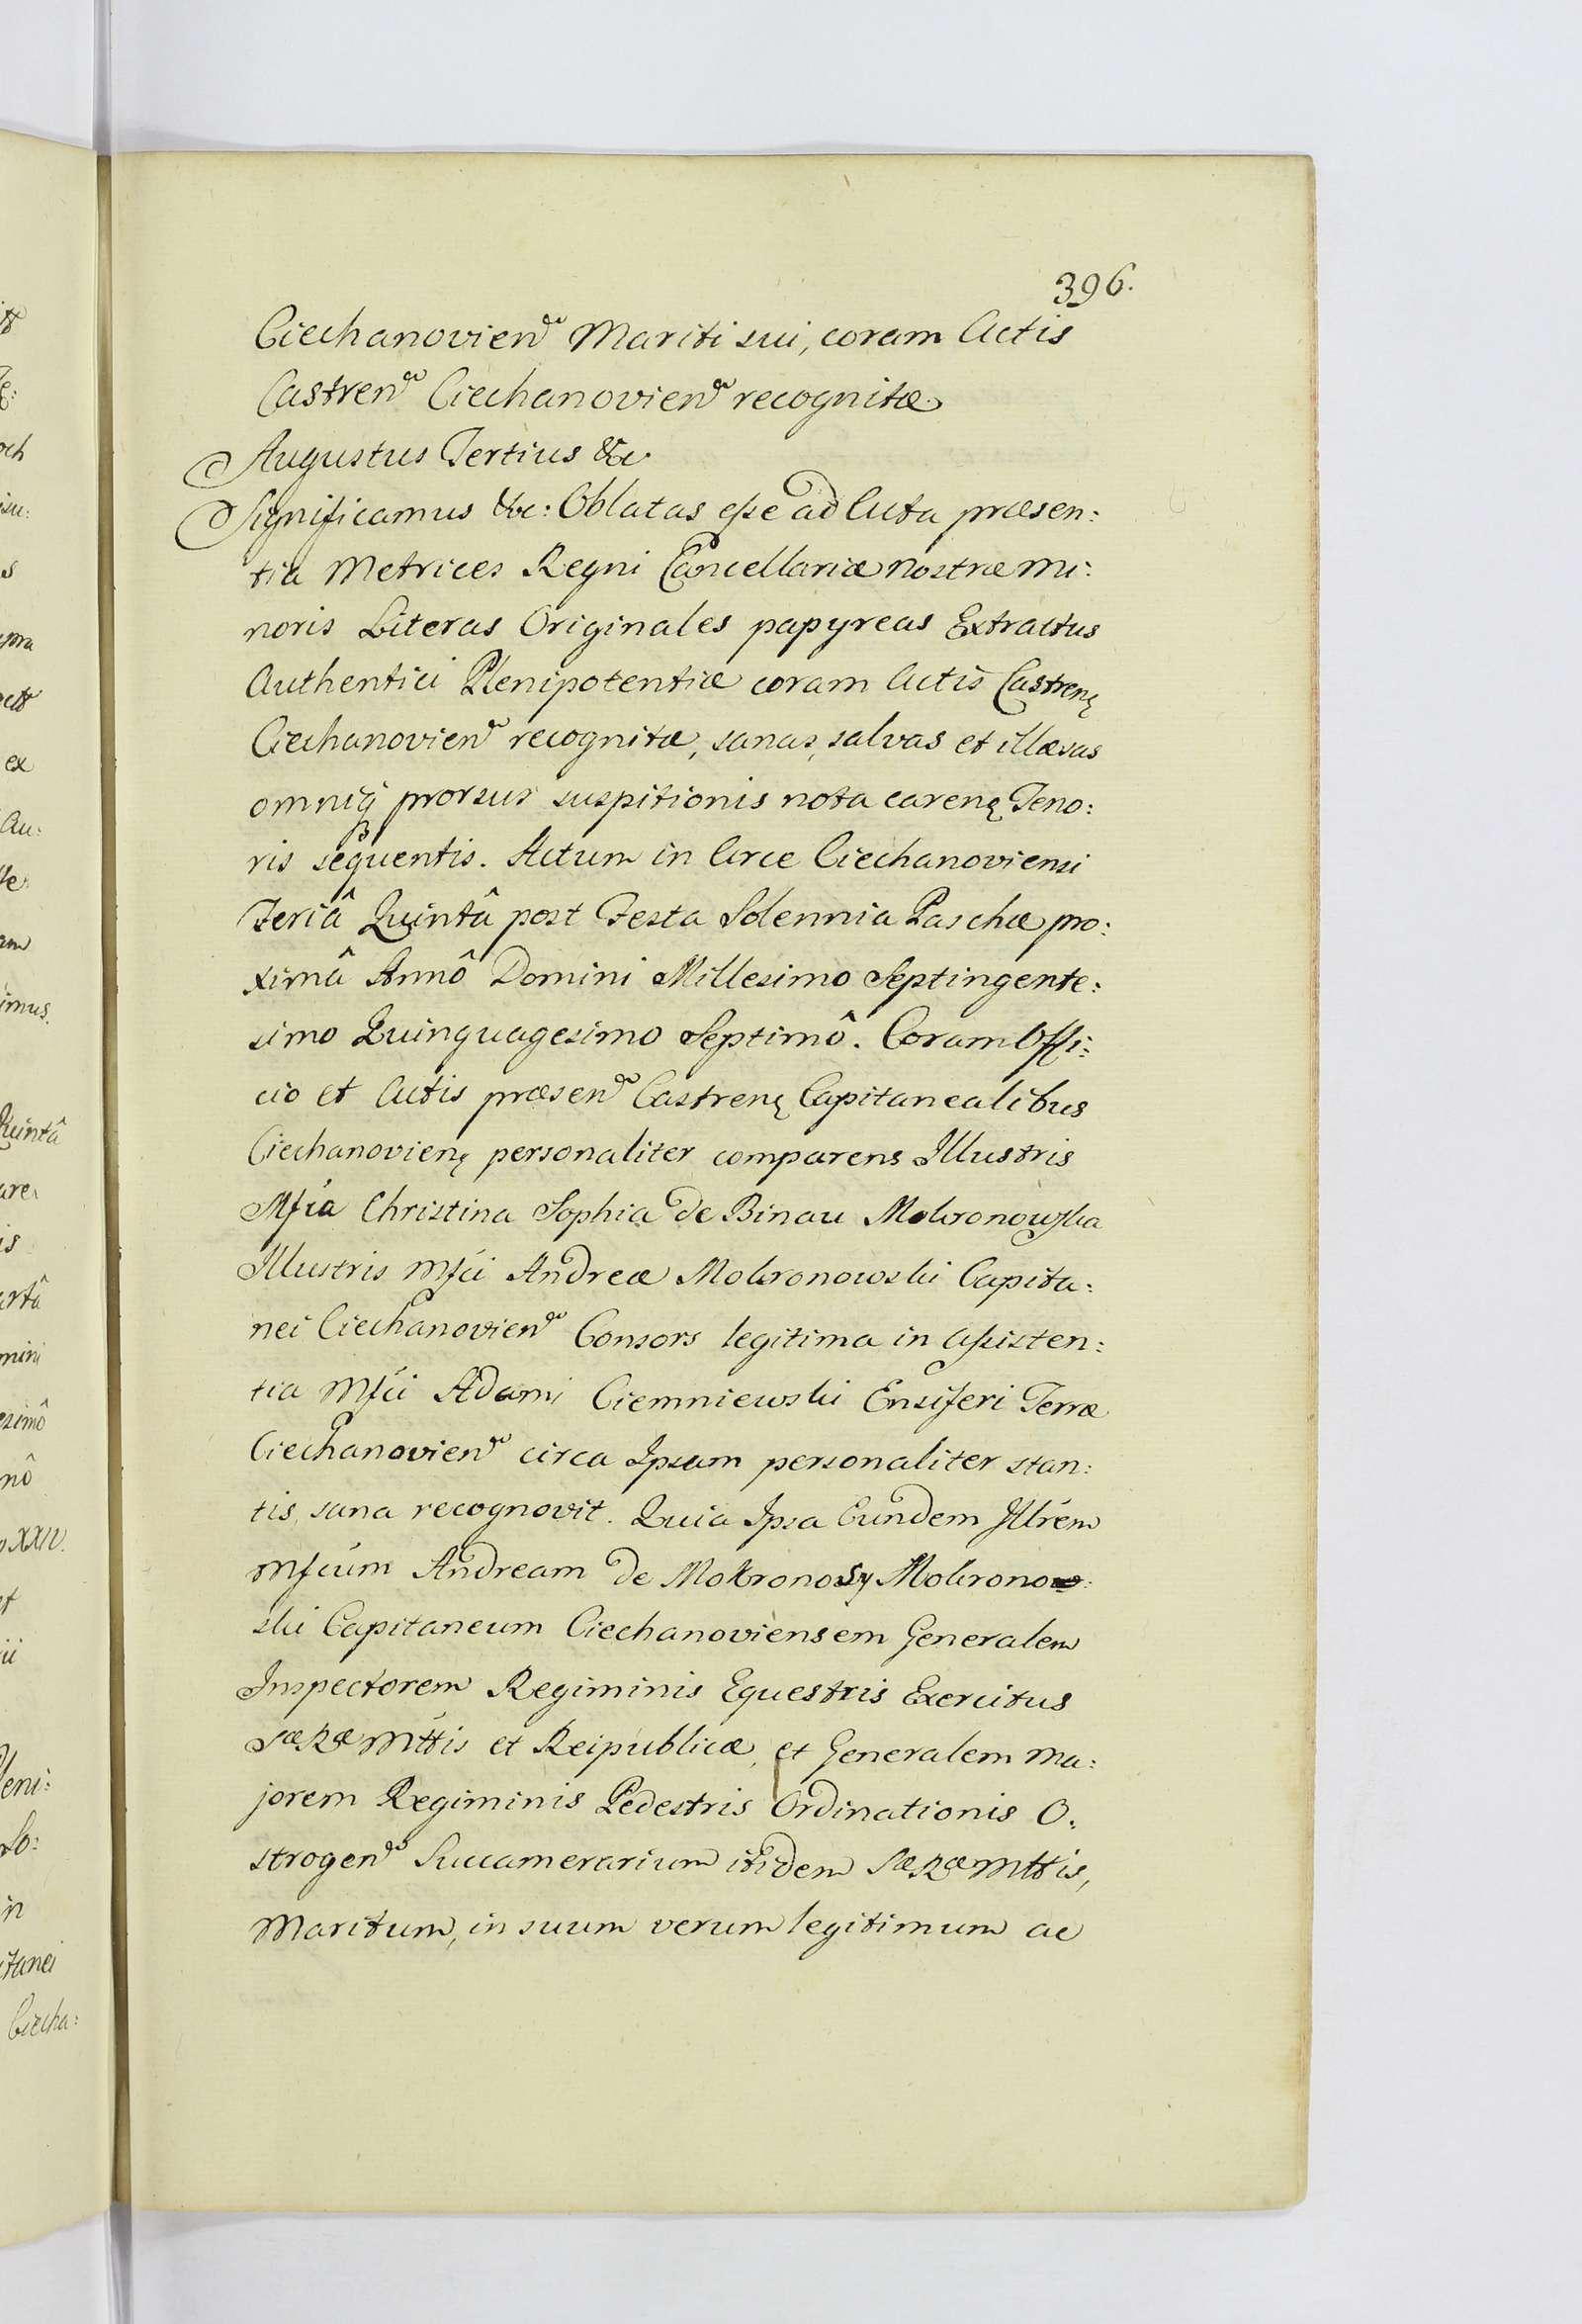 396.
Ciechanovien̄ Mariti sui, coram Actis
Castren̄ Ciechanovien̄ recognitæ
Augustus Tertius &c
Significamus &c: Oblatas eße ad Acta præsen:
tia Metrices Regni Cancellariæ nostræ Mi:
noris Literas Originales papyreas Extractus
Authentici Plenipotentiæ coram Actis Castrenę
Ciechanovien̄ recognitæ, sanas, salvas et illæsas
omniq́ prorsus suspitionis nota carenę Teno:
ris seqventis. Actum in Arce Ciechanoviensi
Feriâ Quintâ post Festa Solennia Paschæ pro:
ximâ Annô Domini Millesimo Septingente:
simo Quinquagesimo Septimô. Coram Offi:
cio et Actis præsen̄ Castrenę Capitanealibus
Ciechanovienę personaliter comparens Illustris
Mfca Christina Sophia de Binau Mokronowska
Illustris Mfci Andreæ Mokronowski Capita:
nei Ciechanovien̄ Consors legitima in Aßisten:
tia Mfci Adami Ciemniewski Ensiferi Terræ
Ciechanovien̄ circa Ipsam personaliter stan:
tis, sana recognovit. Quia Ipsa Eundem Illrem
Mfcum Andream de Mokronosy Mokronow:
ski Capitaneum Ciechanoviensem Generalem
Inspectorem Regiminis Equestris Exercitus
Sæ Ræ Mttis et Reipublicæ, et Generalem Ma:
jorem Regiminis Pedestris Ordinationis O:
strogen̄ Succamerarium itidem Sæ Ræ Mttis,
Maritum, in suum verum legitimum ac
Quintâ
ex
Au:
imus.
XXIV.
Pleni:
in
itanei
Ciecha: